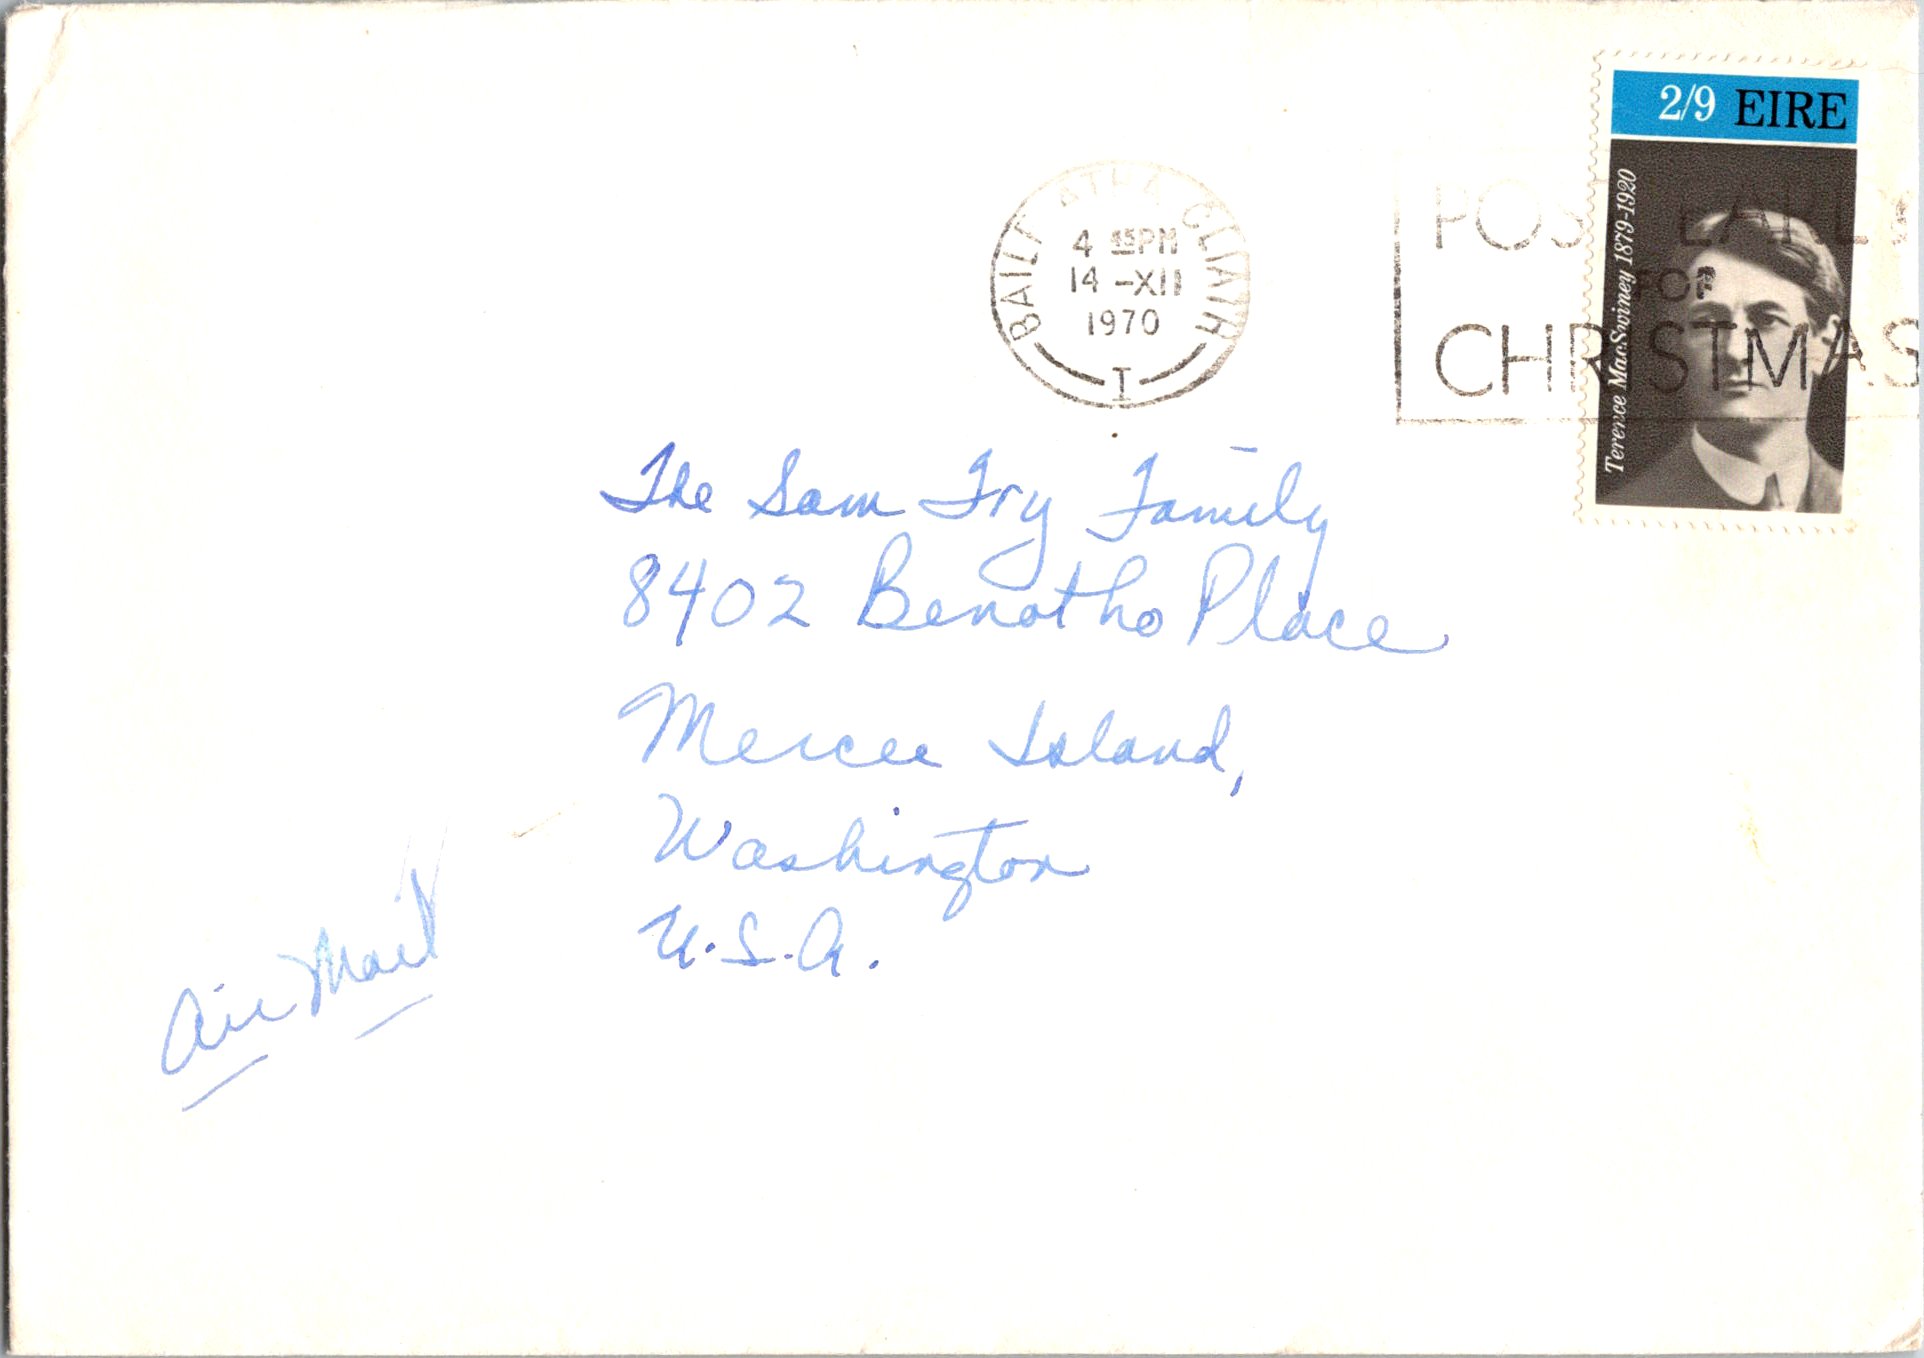 2/9 EIRE
Terence MacSwiney 1879-1920
BAILE ÁTHA CLIATH
4 45PM
14 -XII
1970
I
POST EARLY
FOR
CHRISTMAS
The Sam Fry Family
8402 Benotho Place
Mercer Island,
Washington
U.S.A.
Air Mail